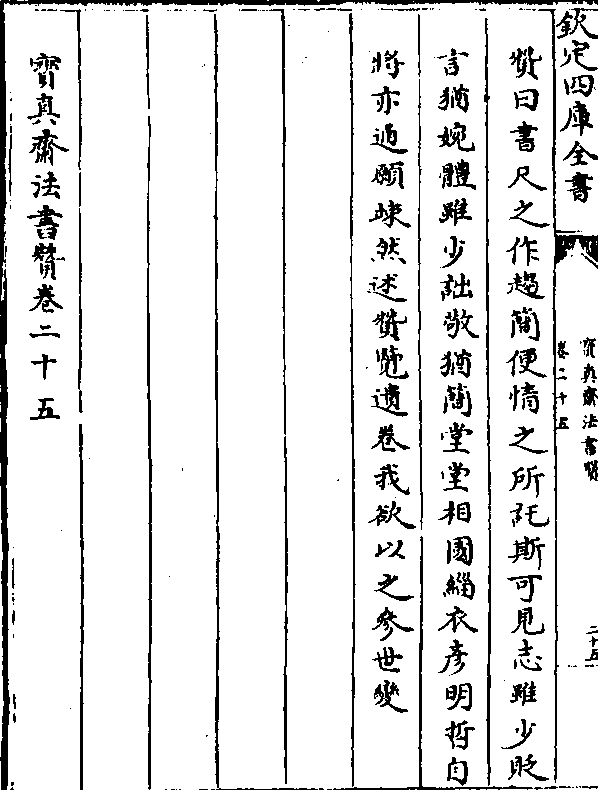 欽定四庫全書
寶真齋法書贊
卷二十五
二十五
贊曰書尺之作趨簡便情之所託斯可見志雖少貶
言猶婉體雖少詘敬猶簡堂堂相國緇衣彥明哲自
將亦過願竦然述贊覽遺卷我欲以之參世變
寶真齋法書贊卷二十五